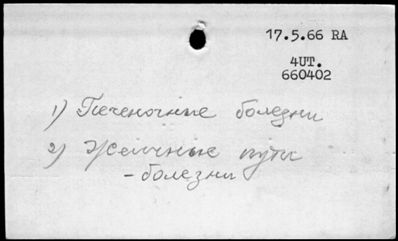 17.5.66 RA
4UT.
660402
1) Печеночные болезни
2) Желчные пути
- болезни